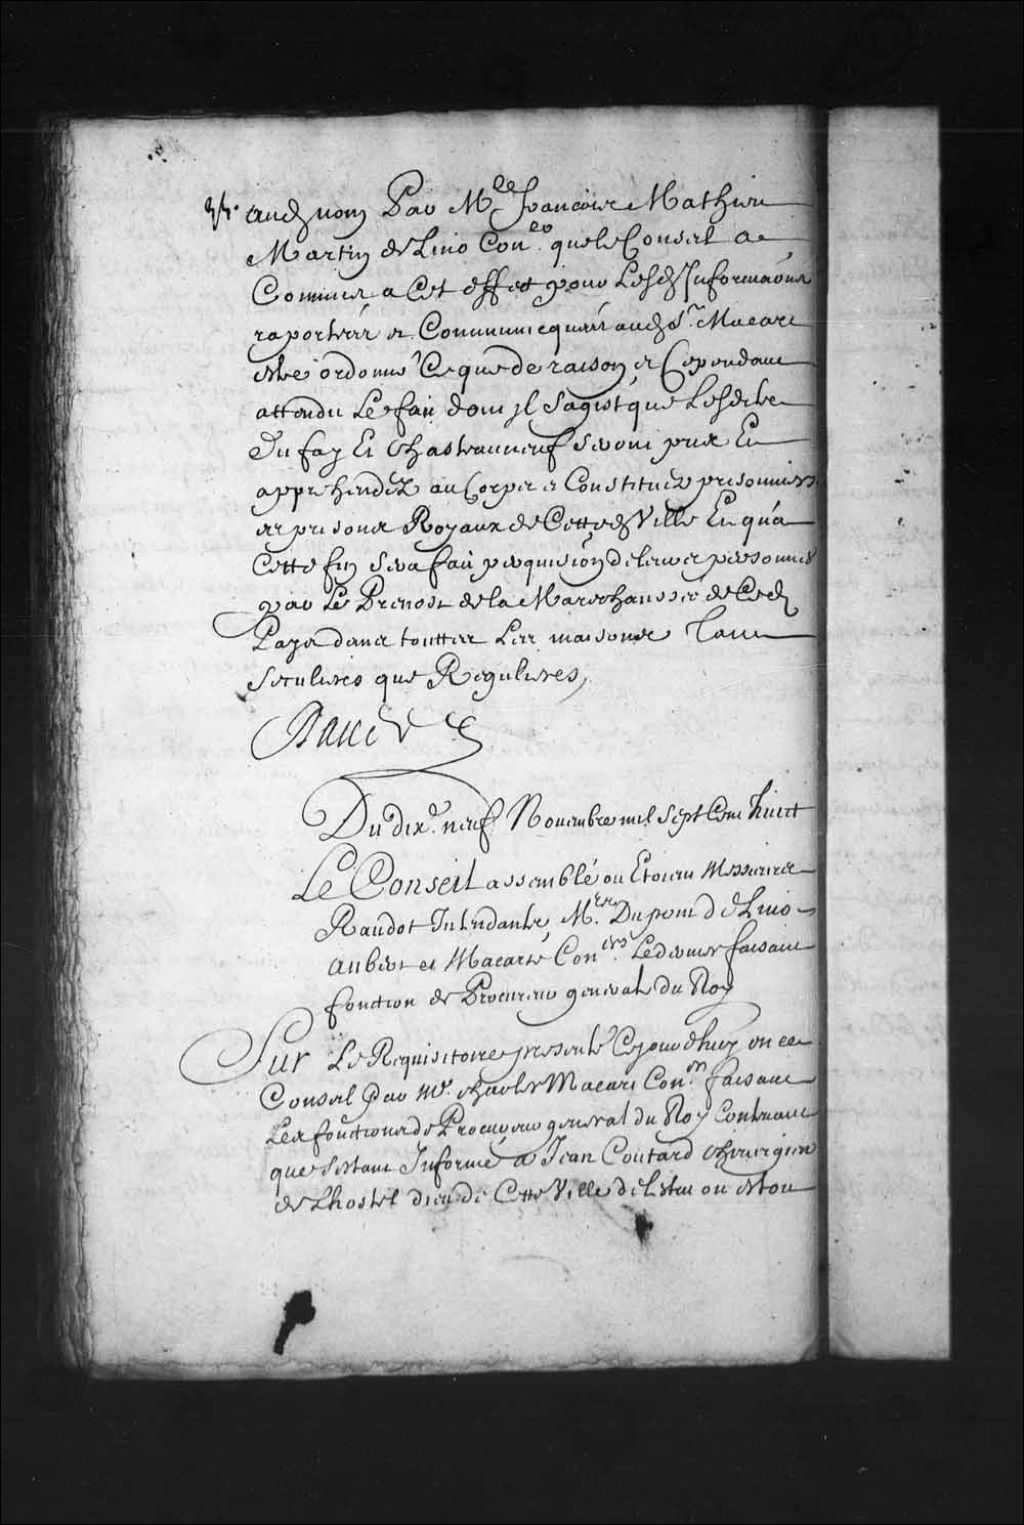 audt nom Par Me francois Mathieu
Martin de Lino Coner que le Conseil a
Commis a Cet effet pour Lesdt Informaons
raporteés et Communicquéés audt Sr. Macart
estre ordonné Ce que de raison et Cependant
attendu Le fait dont jl sagist que Lesdits
Du fay Et Chasteauneuf seront pris Et
apprehendez au Corps et Constituéz prisonniers
es prisons Royaux de Cettedt Ville Et qu'a
Cette fin sera fait perquisi͠on de leurs personnes
par Le Prevost de la Mareschaussée de Cedt
Pays dans touttes Les maisons Tant
seculieres que Regulieres,
Raudot
Du dixe. neuf Novembre mil sept Cent huict
Le Conseil assemblé ou Etoient Messieurs
Raudot Intendants, Mrs. Dupont De Lino
Aubert et Macart Coners. Le dernier faisant
fonction de Procureur general du Roy
Sur Le Requisitoire presenté Cejourdhuy en ce
Conseil Par Me. Charles Macart Coner faisant
Les fonctions de Procureur general du Roy Contenant
que sestant Informé a Jean Coutard chirurgien
de Lhostel dieu de Cette Ville de Lestat ou estoit